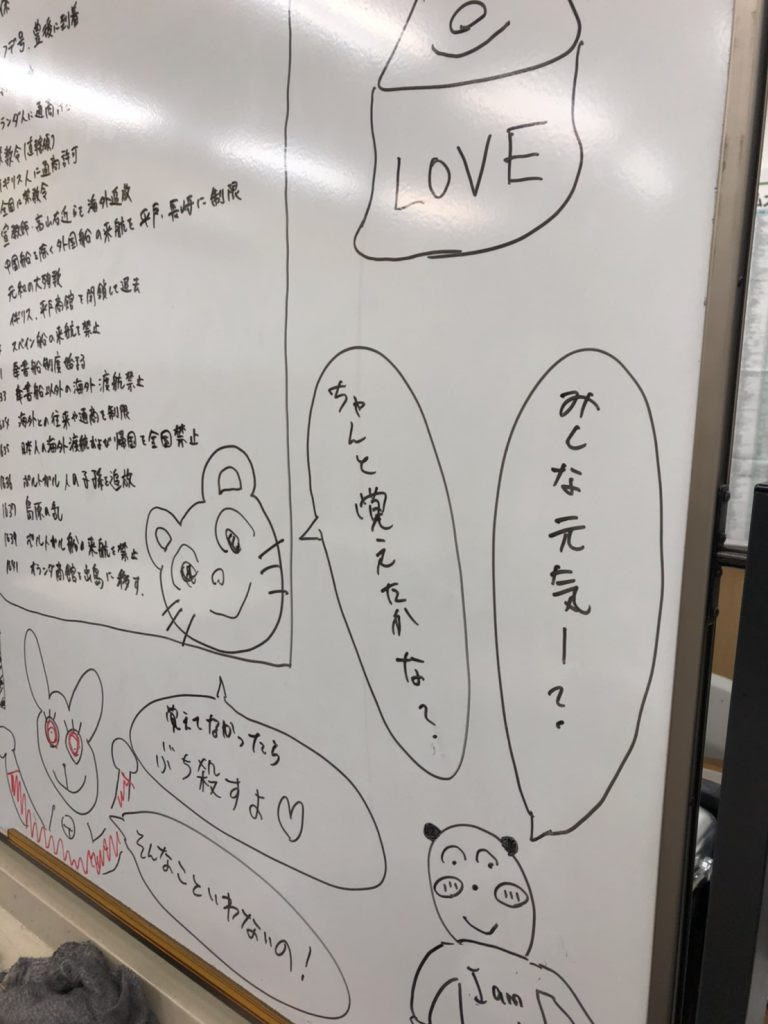 フデ号、豊後に到着
ランダ人に通商許
禁教令(直轄領)
ギリス人に通商許可
全国に禁教令
宣教師・高山右近らを海外追放
中国船を除く外国船の来航を平戸、長崎に制限
元和の大殉教
イギリス、平戸商館を閉鎖して退去
スペイン船の来航を禁止
1 奉書船制度始まる
33 奉書船以外の海外渡航禁止
海外との往来や通商を制限
1635 日本人の海外渡航および帰国を全面禁止
1636 ポルトガル人の子孫を追放
1637 島原の乱
1639 ポルトガル船の来航を禁止
1641 オランダ商館を出島に移す.
LOVE
みんな元気ー?
ちゃんと覚えたかな?
覚えてなかったら
ぶち殺すよ♡
そんなこといわないの!
I am